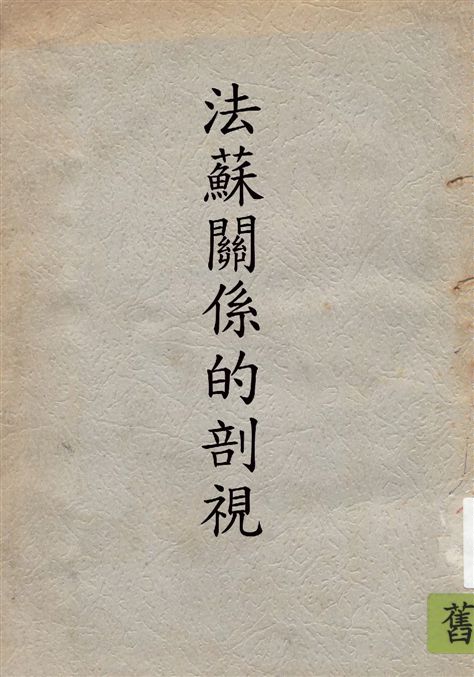 法蘇關係的剖視
舊